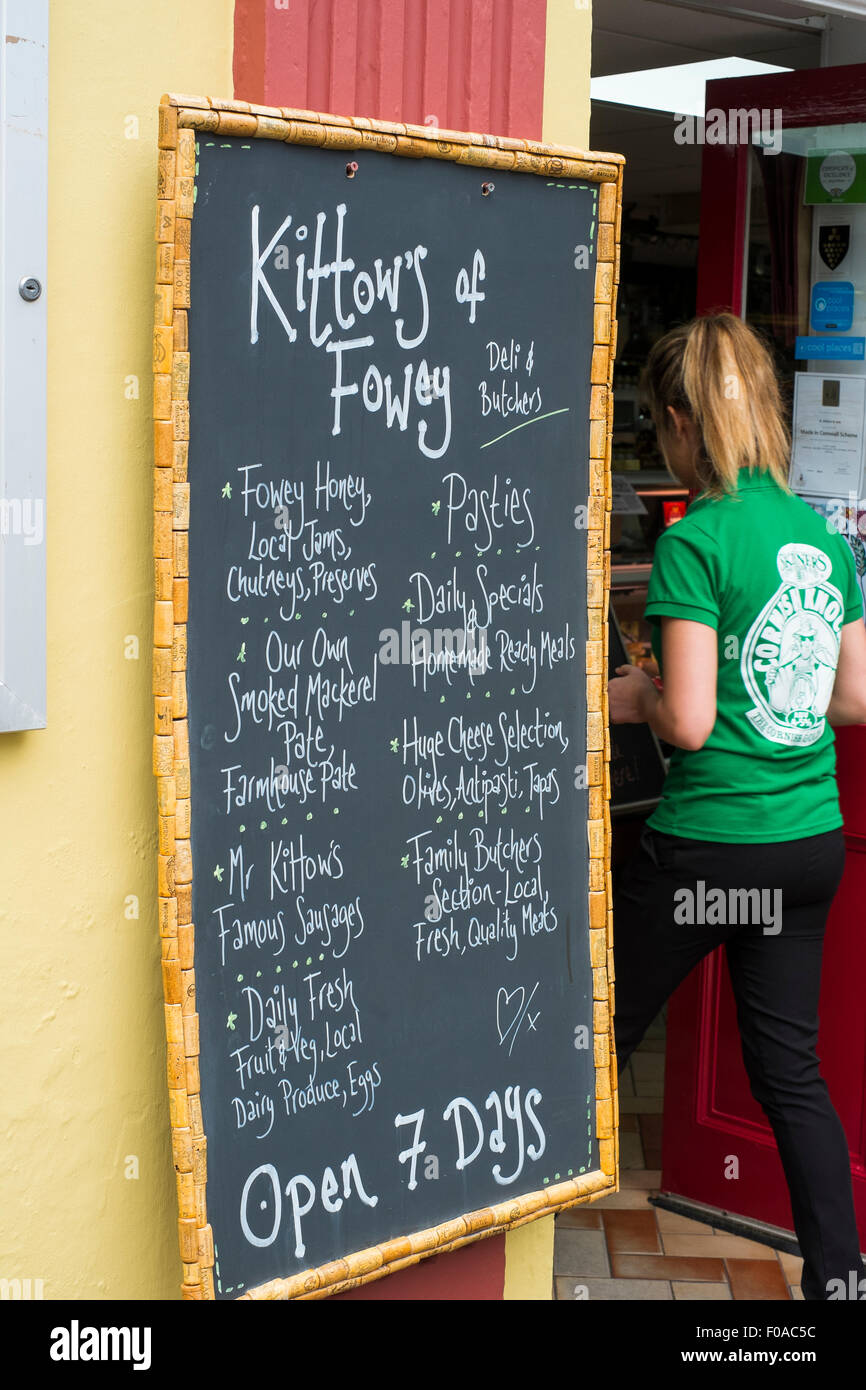 Kittow's of
Fowey
Deli &
Butchers
Fowey Honey,
Local Jams,
Chutneys, Preserves
Our Own
Smoked Mackerel
Pate,
Farmhouse Pate
Mr Kittow's
Famous Sausages
Daily Fresh
Fruit & Veg, Local
Dairy Produce, Eggs
Pasties
Daily Specials
&
Homemade Ready Meals
Huge Cheese Selection,
Olives, Antipasti, Tapas
Family Butchers
Section - Local,
Fresh, Quality Meats
x
Open 7 Days
CERTIFICATE of
EXCELLENCE
cool
places
cool places
Made in Cornwall Scheme
SKINNER'S
CORNISH KNOCKER
THE CORNISH GOLD
alamy
Image ID: F0AC5C
www.alamy.com